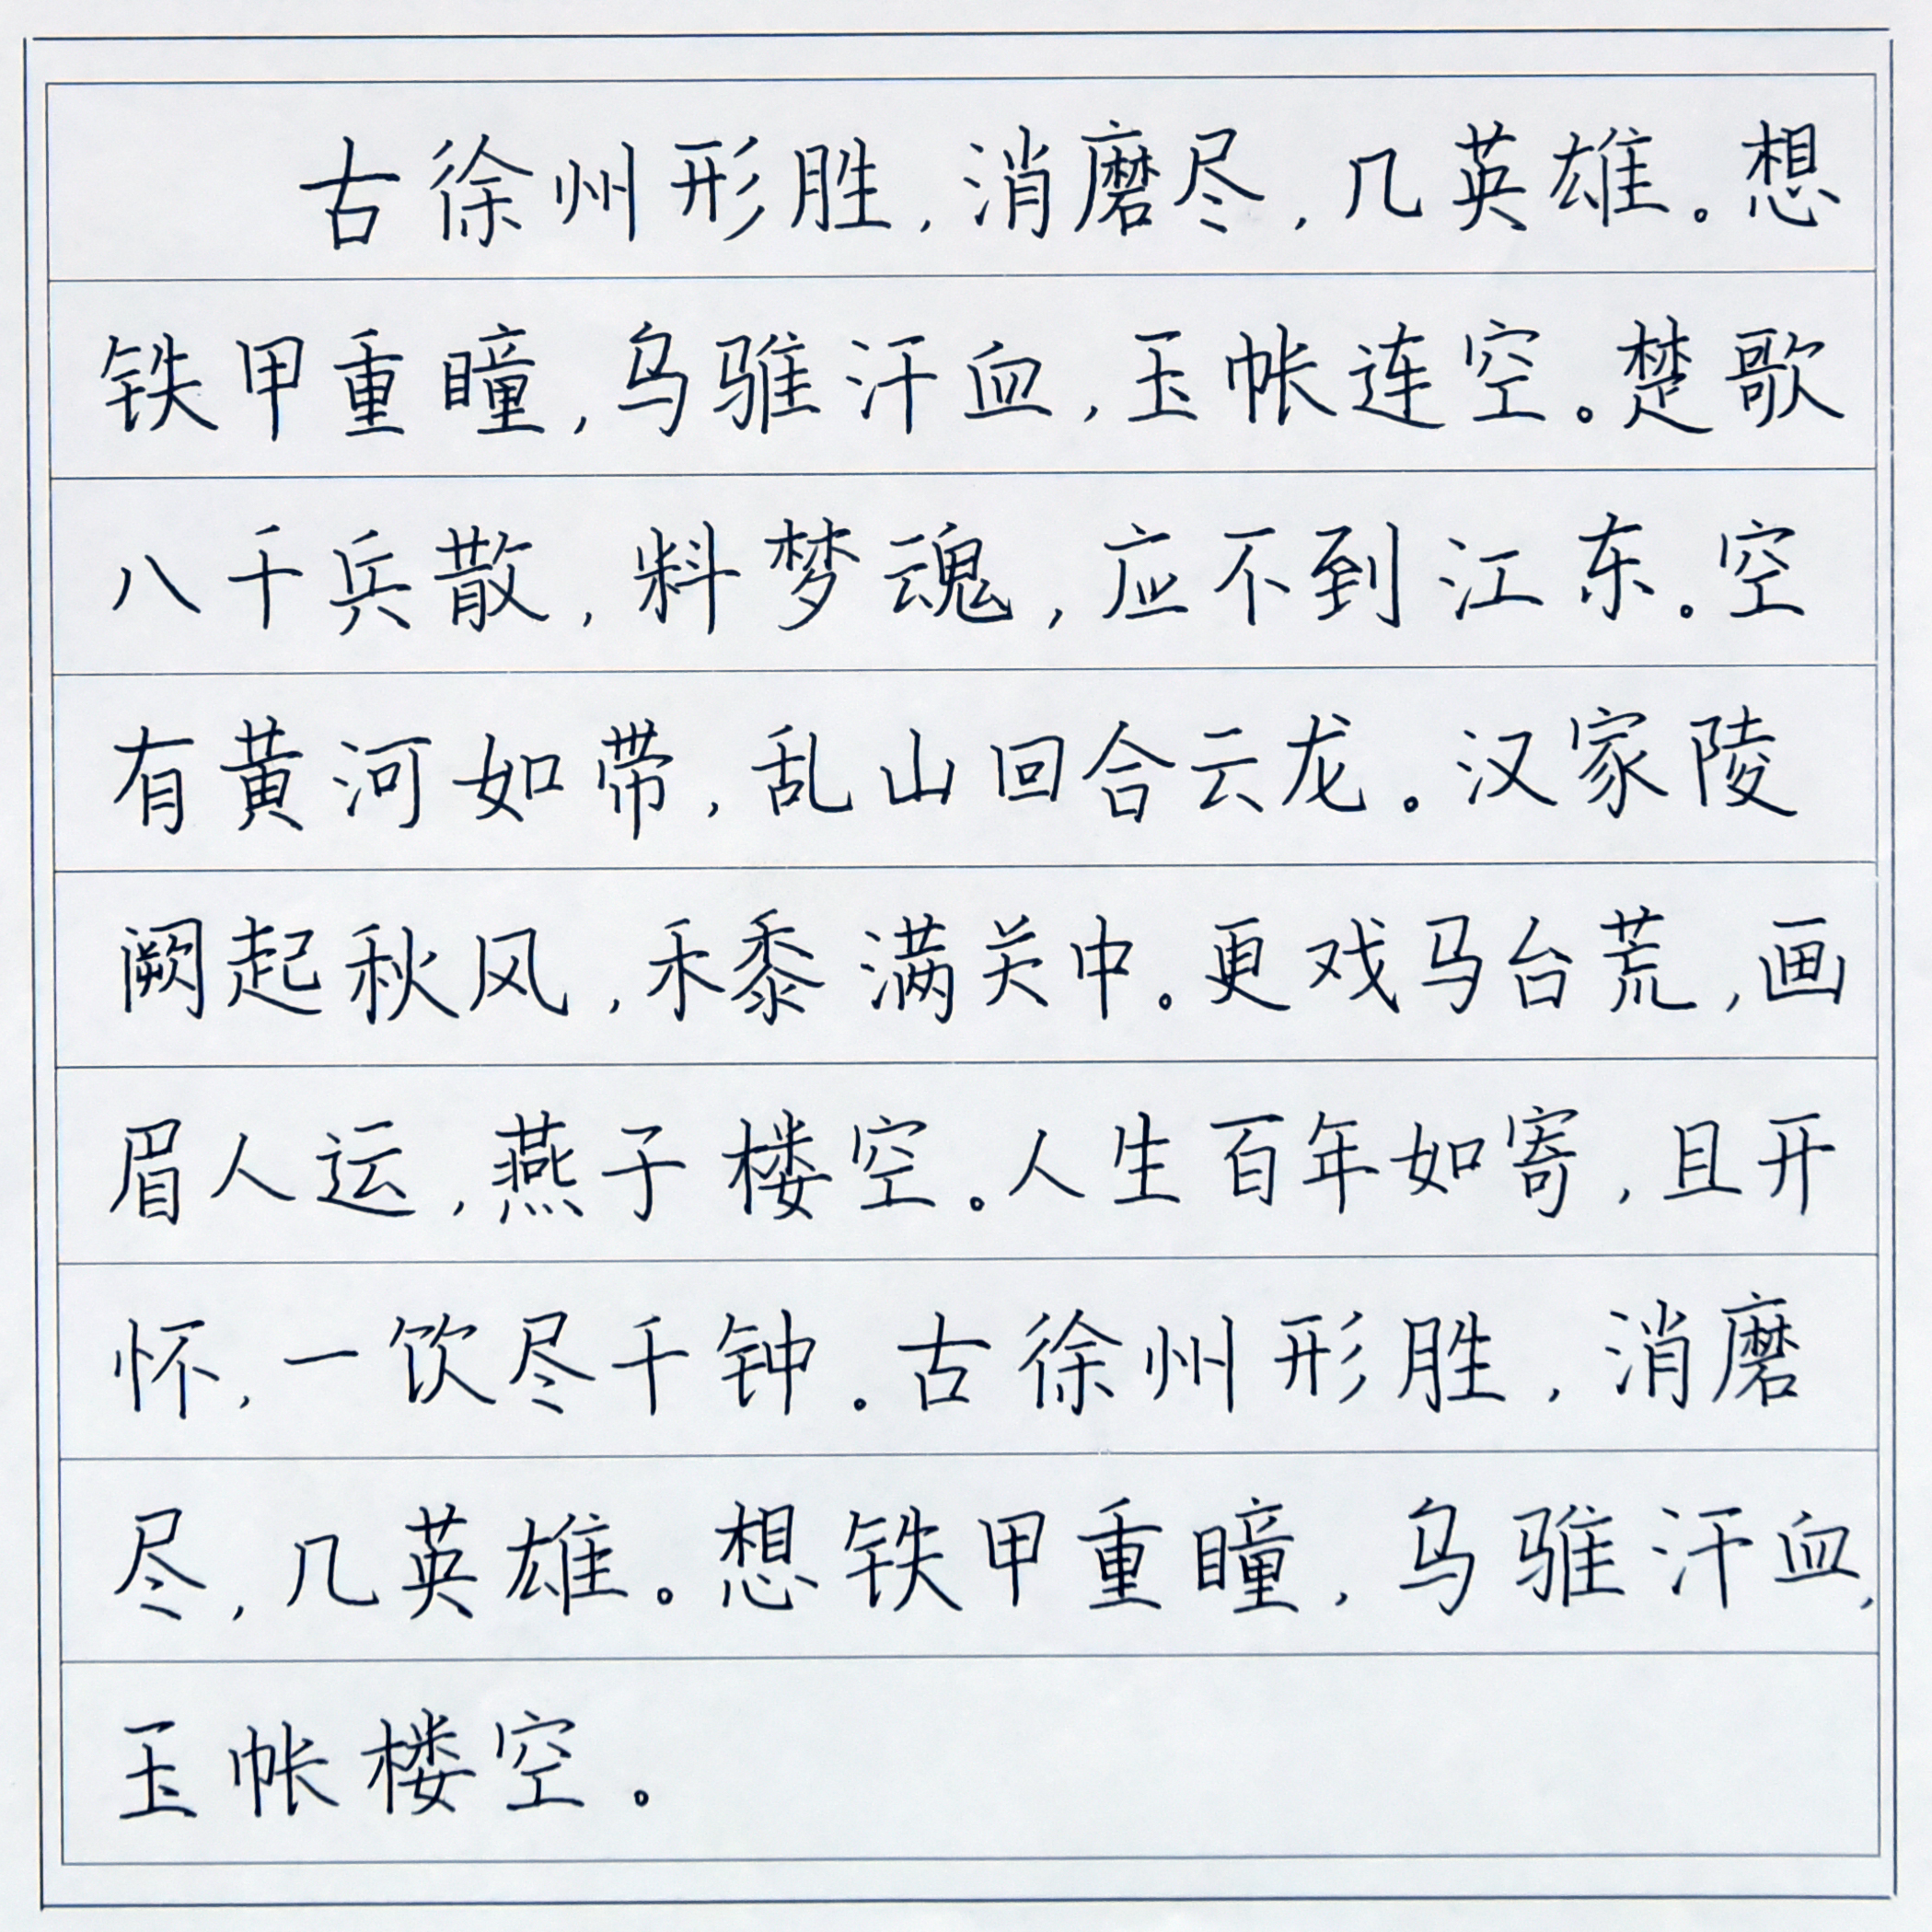 古徐州形胜,消磨尽,几英雄。想
铁甲重瞳,乌骓汗血,玉帐连空。楚歌
八千兵散,料梦魂,应不到江东。空
有黄河如带,乱山回合云龙。汉家陵
阙起秋风,禾黍满关中。更戏马台荒,画
眉人运,燕子楼空。人生百年如寄,且开
怀,一饮尽千钟。古徐州形胜,消磨
尽,几英雄。想铁甲重瞳,乌骓汗血,
玉帐楼空。